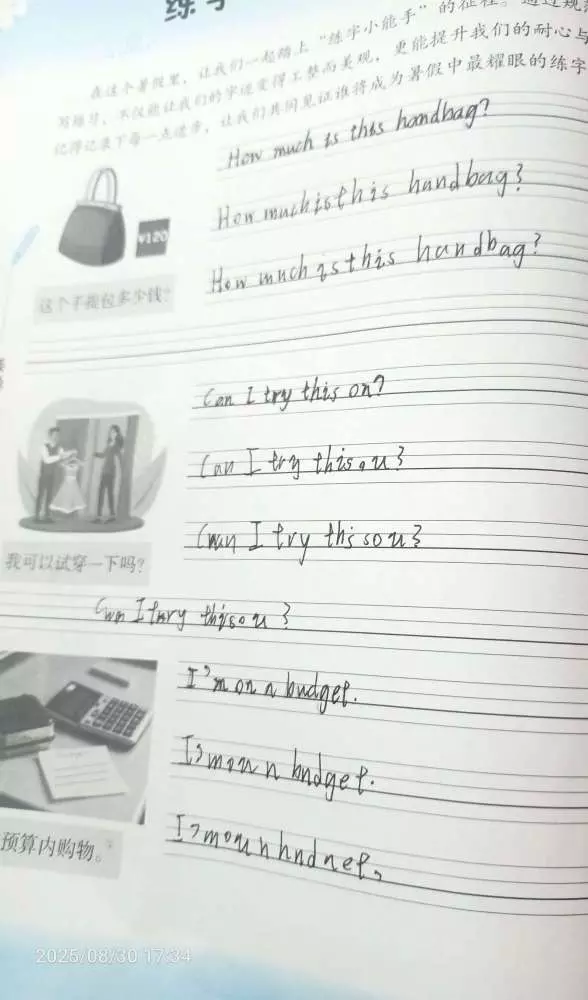 练字
在这个暑假里，让我们一起踏上“练字小能手”的征程。通过规
写练习，不仅能让我们的字迹变得工整而美观，更能提升我们的耐心与
记得记录下每一点进步，让我们共同见证谁将成为暑假中最耀眼的练字
How much is this handbag?
How much is this handbag?
How much is this handbag?
¥120
这个手提包多少钱?
Can I try this on?
Can I try this ou?
Can I try this ou?
我可以试穿一下吗?
Can I try this ou?
I'm on a budget.
I'm ou a budget.
I'm ou a
预算内购物。
2025/08/30 17:34